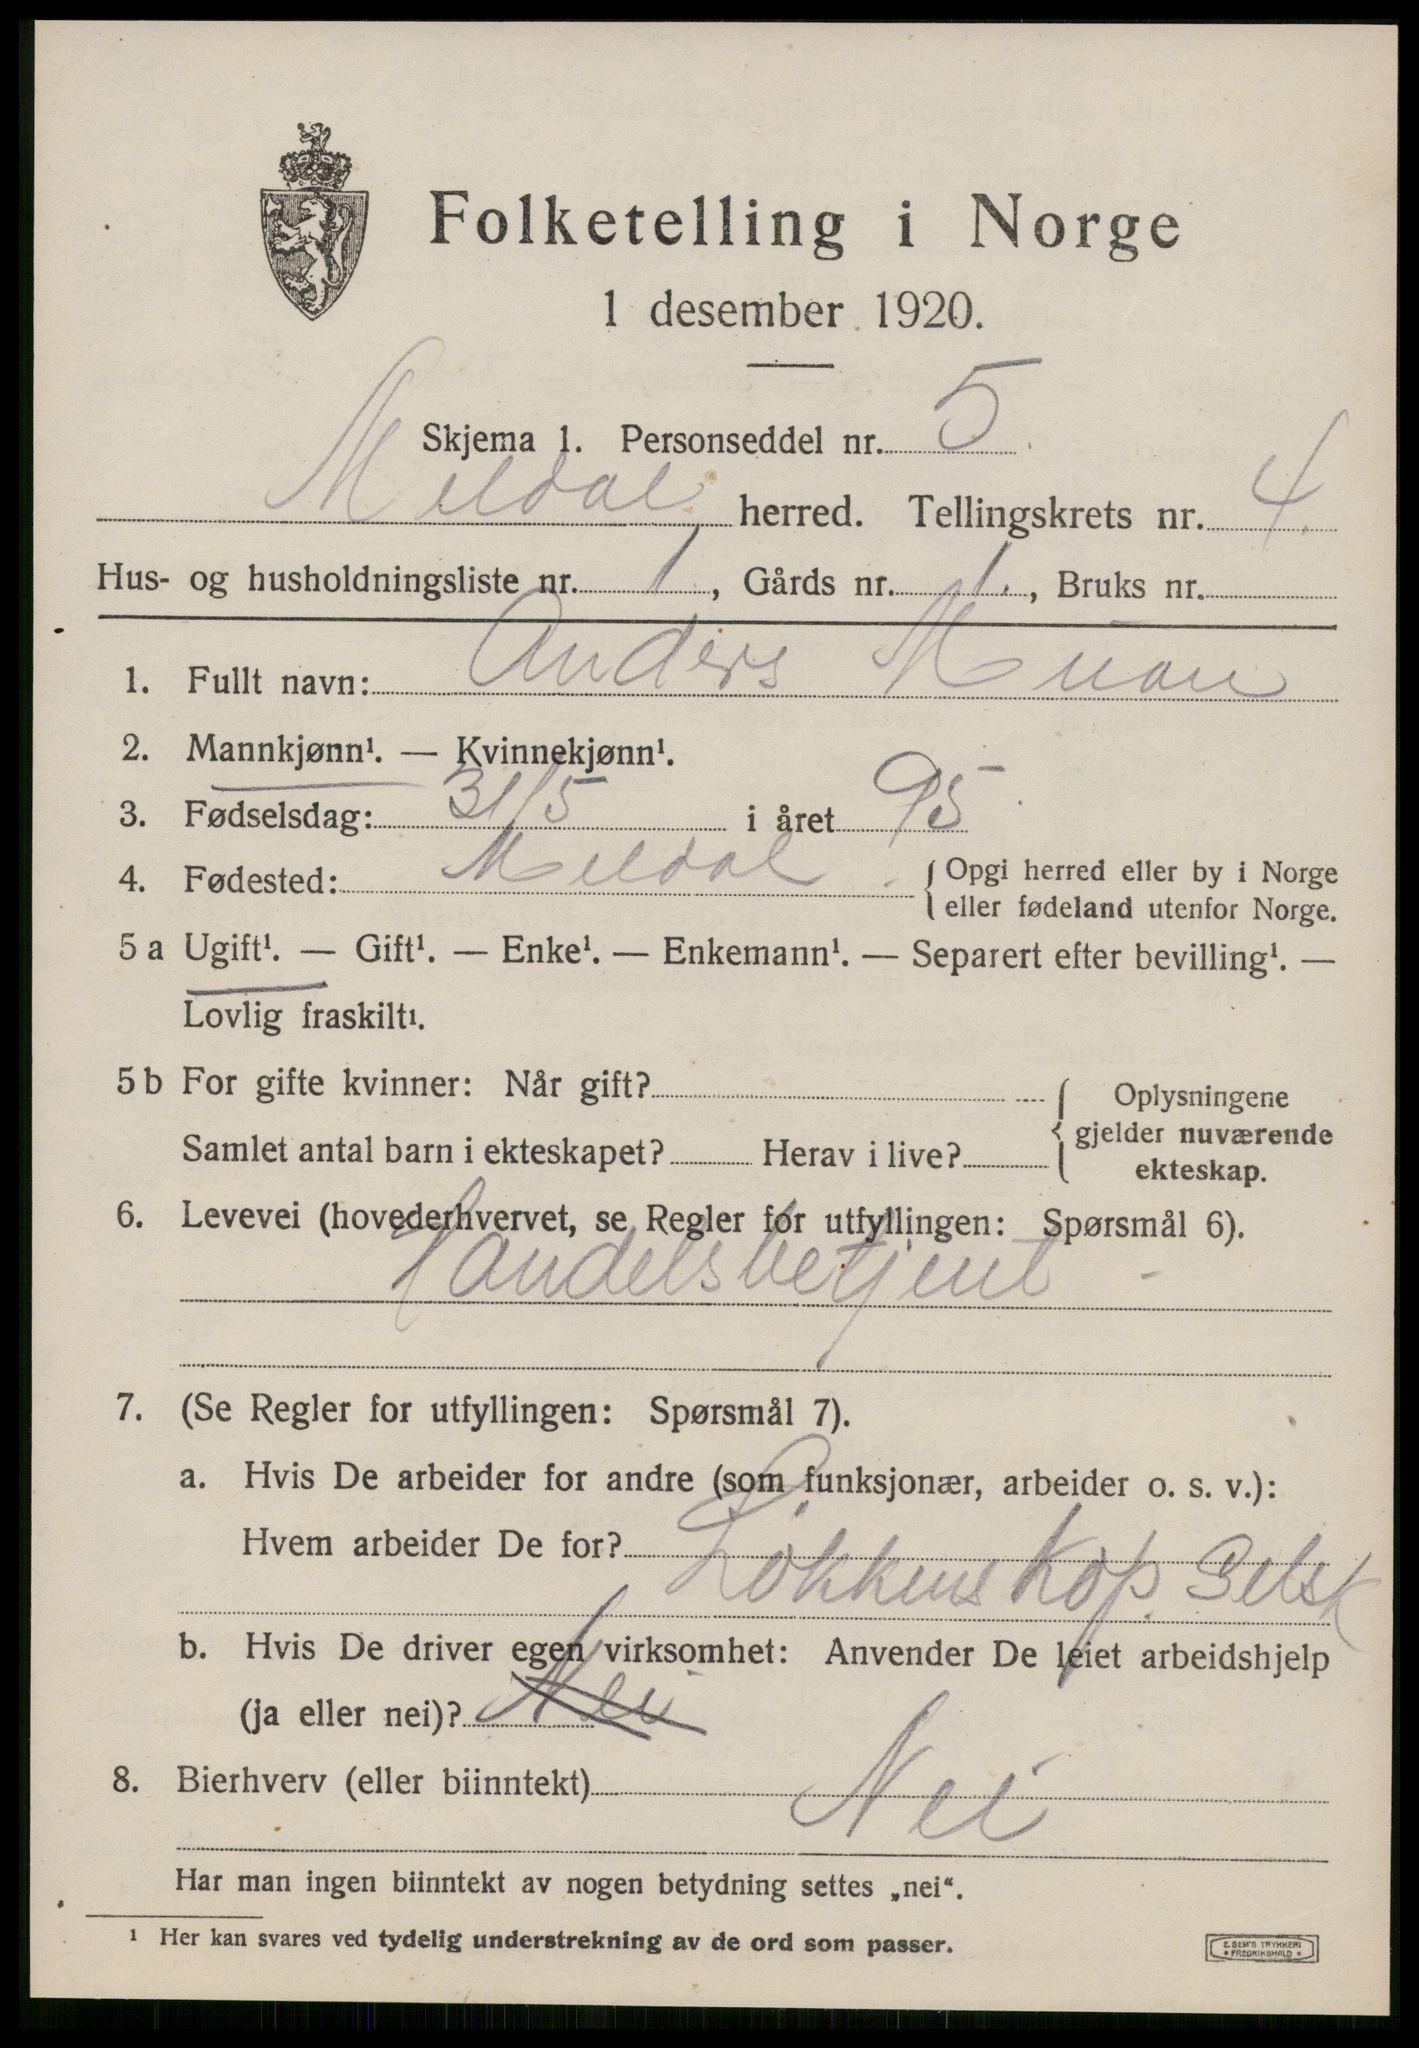 Folketelling i Norge
1 desember 1920.
Skjema 1. Personseddel nr. 5
Meldal herred. Tellingskrets nr. 4.
Hus- og husholdningsliste nr. 1, Gårds nr. 1., Bruks nr.
1. Fullt navn: Anders Muan
2. Mannkjønn¹. — Kvinnekjønn¹.
3. Fødselsdag: 31/5 i året 95
4. Fødested: Meldal. { Opgi herred eller by i Norge
eller fødeland utenfor Norge.
5 a Ugift¹. — Gift¹. — Enke¹. — Enkemann¹. — Separert efter bevilling¹. —
Lovlig fraskilt¹.
5 b For gifte kvinner: Når gift?
Samlet antal barn i ekteskapet? Herav i live?
{ Oplysningene
gjelder nuværende
ekteskap.
6. Levevei (hovederhvervet, se Regler for utfyllingen: Spørsmål 6).
Handelsbetjent -
7. (Se Regler for utfyllingen: Spørsmål 7).
a. Hvis De arbeider for andre (som funksjonær, arbeider o. s. v.):
Hvem arbeider De for?
Løkkens Kop. Selsk
b. Hvis De driver egen virksomhet: Anvender De leiet arbeidshjelp
(ja eller nei)? Nei
8. Bierhverv (eller biinntekt) Nei
Har man ingen biinntekt av nogen betydning settes „nei“.
¹ Her kan svares ved tydelig understrekning av de ord som passer.
E. SEM'S TRYKKERI
• FREDRIKSHALD •